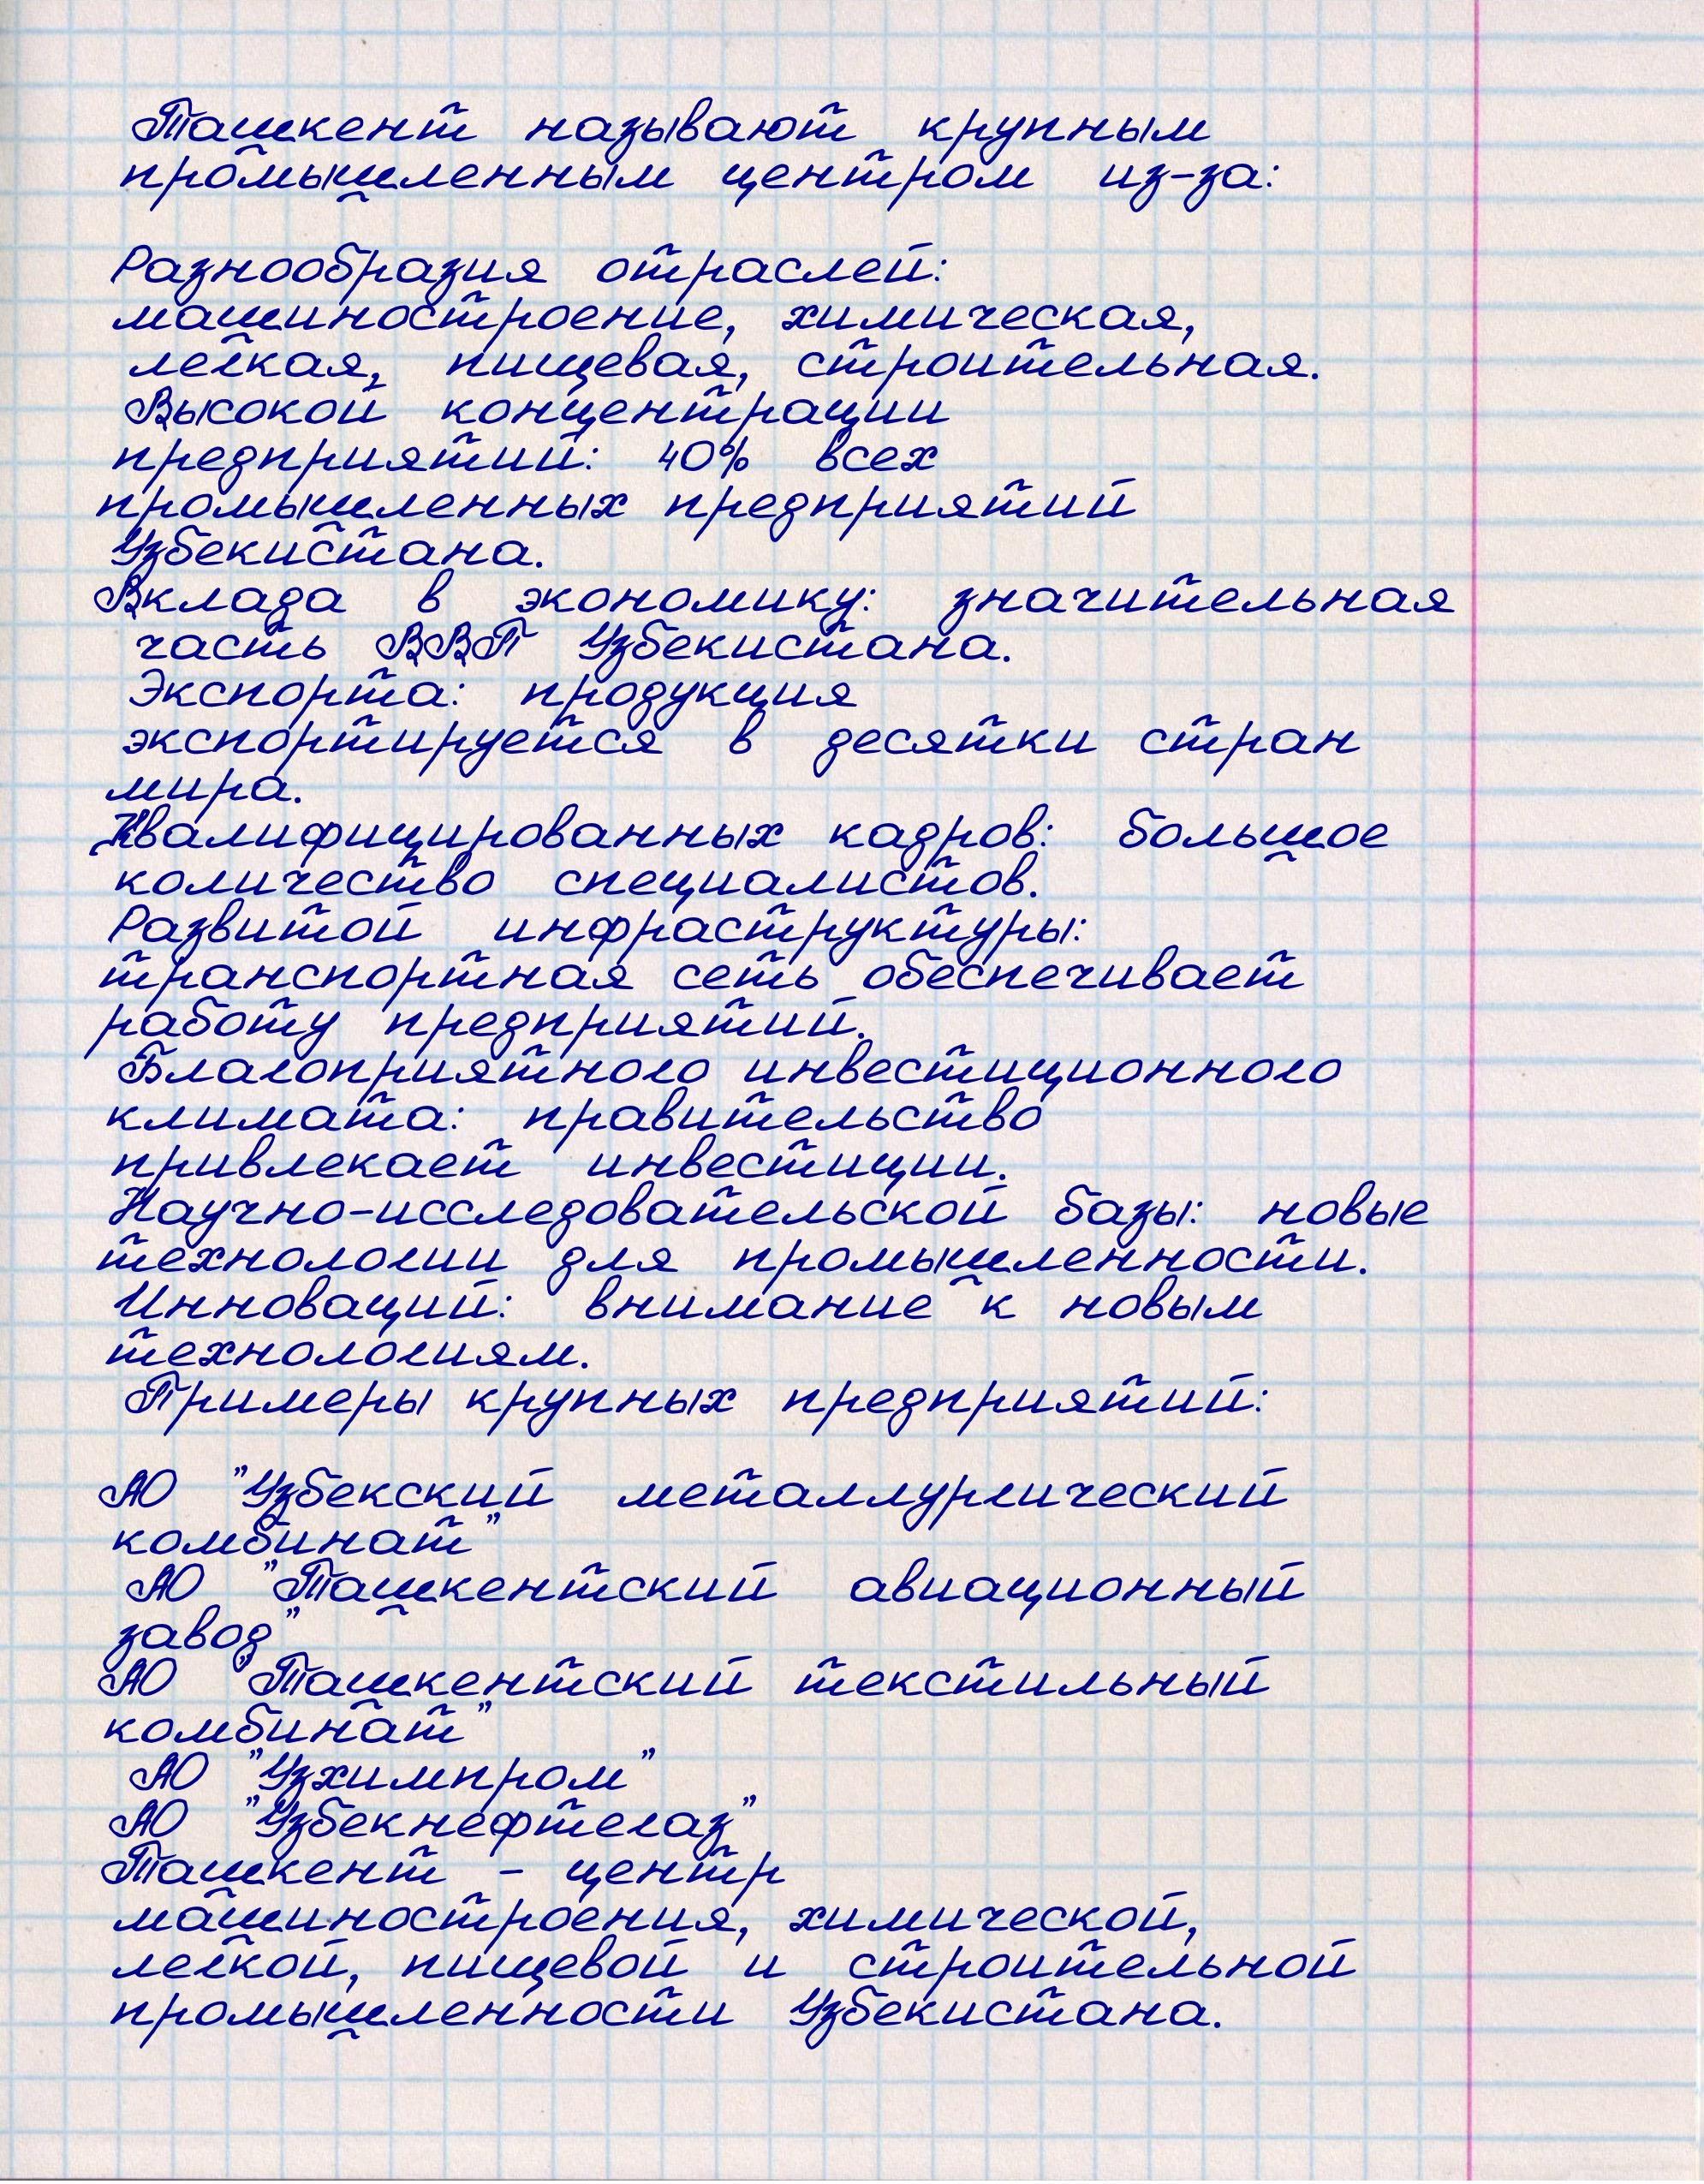 Ташкент называют крупным
промышленным центром из-за:
Разнообразия отраслей:
машиностроение, химическая,
легкая, пищевая, строительная.
Высокой концентрации
предприятий: 40% всех
промышленных предприятий
Узбекистана.
Вклада в экономику: значительная
часть ВВП Узбекистана.
Экспорта: продукция
экспортируется в десятки стран
мира.
Квалифицированных кадров: большое
количество специалистов.
Развитой инфраструктуры:
транспортная сеть обеспечивает
работу предприятий.
Благоприятного инвестиционного
климата: правительство
привлекает инвестиции.
Научно-исследовательской базы: новые
технологии для промышленности.
Инноваций: внимание к новым
технологиям.
Примеры крупных предприятий:
АО "Узбекский металлургический
комбинат"
АО "Ташкентский авиационный
завод"
АО "Ташкентский текстильный
комбинат"
АО "Узхимпром"
АО "Узбекнефтегаз"
Ташкент - центр
машиностроения, химической,
легкой, пищевой и строительной
промышленности Узбекистана.